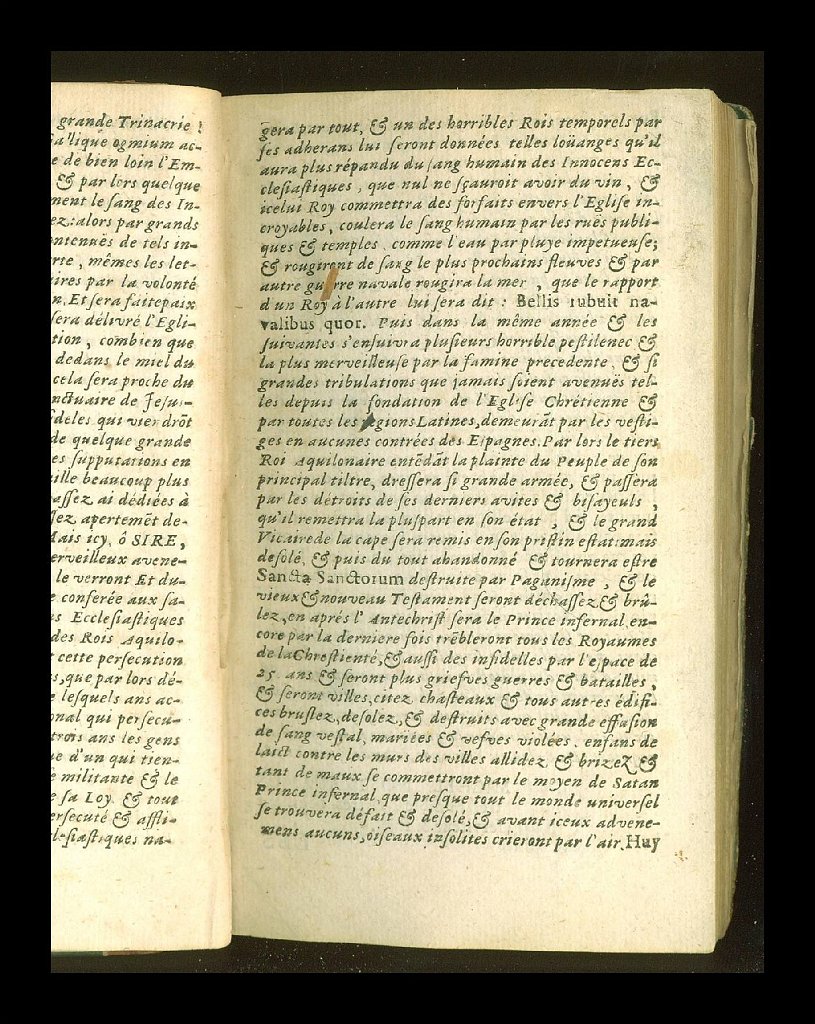 grande Trinacrie !
lique ogmium ac-
e de bien loin l'Em-
& par lors quelque
ment le ſang des In-
ez: alors par grands
ntenuës de tels in-
rte, mêmes les let-
ires par la volonté
n. Et ſera faite paix
ſera délivré l'Egli-
tion, combien que
dedans le miel du
cela ſera proche du
nctuaire de Jeſu-
fideles qui viendrõt
de quelque grande
es ſupputations en
ille beaucoup plus
aſſez ai dédiées à
ſez apertemẽt de-
Mais icy, ô SIRE,
erveilleux avene-
le verront Et du-
e conferée aux ſa-
s Eccleſiaſtiques
des Rois Aquilo-
t cette perſecution
s, que par lors dé-
e leſquels ans ac-
onal qui perſecu-
trois ans les gens
e d'un qui tien-
e militante & le
e ſa Loy, & tout
erſecuté & affli-
l-ſiaſtiques na-
gera par tout, & un des horribles Rois temporels par
ſes adherans lui ſeront données telles loüanges qu'il
aura plus répandu du ſang humain des Innocens Ec-
cleſiaſtiques, que nul ne ſçauroit avoir du vin, &
icelui Roy commettra des forfaits envers l'Egliſe in-
croyables, coulera le ſang humain par les ruës publi-
ques & temples, comme l'eau par pluye impetueuſe;
& rougiront de ſang le plus prochains fleuves & par
autre guerre navale rougira la mer, que le rapport
d'un Roy à l'autre lui ſera dit : Bellis rubuit na-
valibus quor. Puis dans la même année & les
ſuivantes s'enſuivra pluſieurs horrible peſtilenec &
la plus merveilleuſe par la famine precedente, & ſi
grandes tribulations que jamais ſoient avenuës tel-
les depuis la fondation de l'Egliſe Chrétienne &
par toutes les regions Latines, demeurãt par les veſti-
ges en aucunes contrées des Eſpagnes. Par lors le tiers
Roi Aquilonaire entẽdãt la plainte du Peuple de ſon
principal tiltre, dreſſera ſi grande armée, & paſſera
par les détroits de ſes derniers avites & biſayeuls,
qu'il remettra la pluſpart en ſon état, & le grand
Vicaire de la cape ſera remis en ſon priſtin eſtat: mais
deſolé, & puis du tout abandonné & tournera eſtre
Sancta Sanctorum deſtruite par Paganiſme, & le
vieux & nouveau Teſtament ſeront déchaſſez & brû-
lez, en aprés l'Antechriſt ſera le Prince infernal, en-
core par la derniere fois trẽbleront tous les Royaumes
de la Chreſtienté, & auſſi des infidelles par l'eſpace de
25 ans & ſeront plus griefves guerres & batailles,
& ſeront villes, citez chaſteaux & tous autres édifi-
ces bruſlez, deſolez, & deſtruits avec grande effuſion
de ſang veſtal, mariées & vefves violées, enfans de
laict contre les murs des villes allidez & brizez &
tant de maux ſe commettront par le moyen de Satan
Prince infernal, que preſque tout le monde univerſel
ſe trouvera défait & deſolé, & avant iceux advene-
mens aucuns, oiſeaux inſolites crieront par l'air. Huy